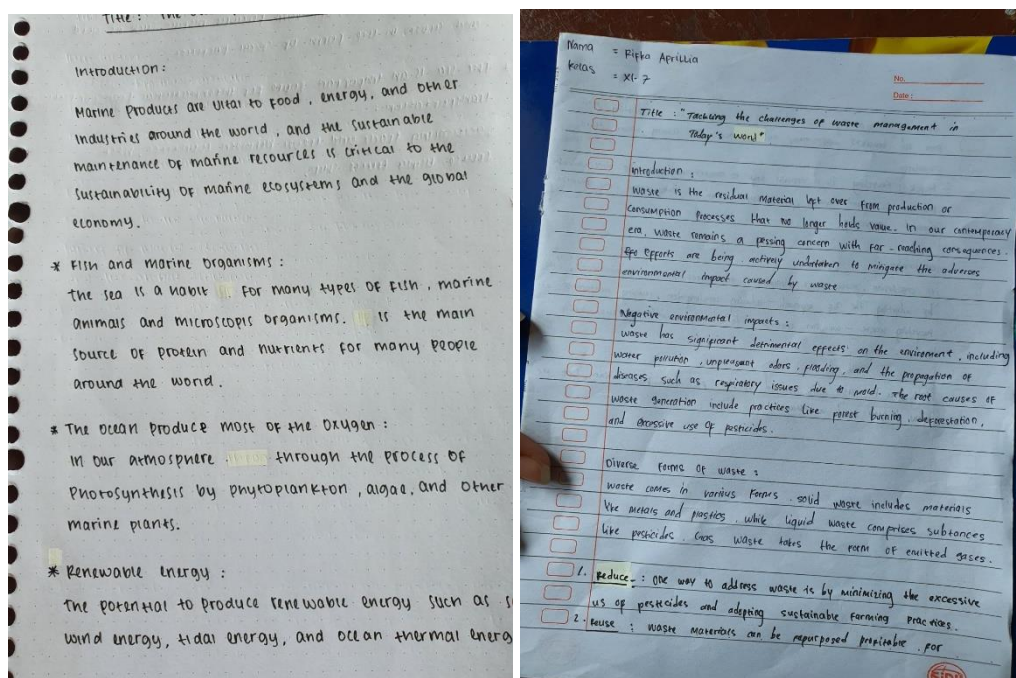 Title: The
Introduction:
Marine Produces are vital to food, energy, and other
Industries around the world, and the sustainable
maintenance of marine resources is critical to the
sustainability of marine ecosystems and the global
economy.
* Fish and marine organisms:
the sea is a habit for many types of fish, marine
animals and microscopis organisms. is the main
source of protein and nutrients for many people
around the world.
* The ocean produce most of the oxygen:
In our atmosphere through the process of
photosynthesis by phytoplankton, algae, and other
marine plants.
* Renewable energy:
The potential to produce renewable energy such as
wind energy, tidal energy, and ocean thermal energ
Nama = Rifka Aprillia
Kelas = XI-7
No.
Date:
Title: "Tackling the challenges of waste management in
Today's world"
introduction:
Waste is the residual material left over from production or
consumption processes that no longer holds value. In our contemporacy
era, waste remains a pessing concern with far-reaching consequences.
efforts are being actively undertaken to mitigate the adverses
environmental impact caused by waste
Negative environmental impacts:
waste has significant detrimental effects on the enviroment, including
water pollution, unpleasant odors, flooding, and the propagation of
diseases such as respiratory issues due to mold. The root causes of
waste generation include practices like forest burning, deforestation,
and excessive use of pesticides.
Diverse forms of waste:
waste comes in various formes. solid waste includes materials
like metals and plastics, while liquid waste comprises subtances
like pesticides. Gas waste takes the form of emitted gases.
1. Reduce: one way to address waste is by minimizing the excessive
us of pesticides and adopting sustainable farming practices.
2. Reuse: waste materials can be repurposed profitable. for